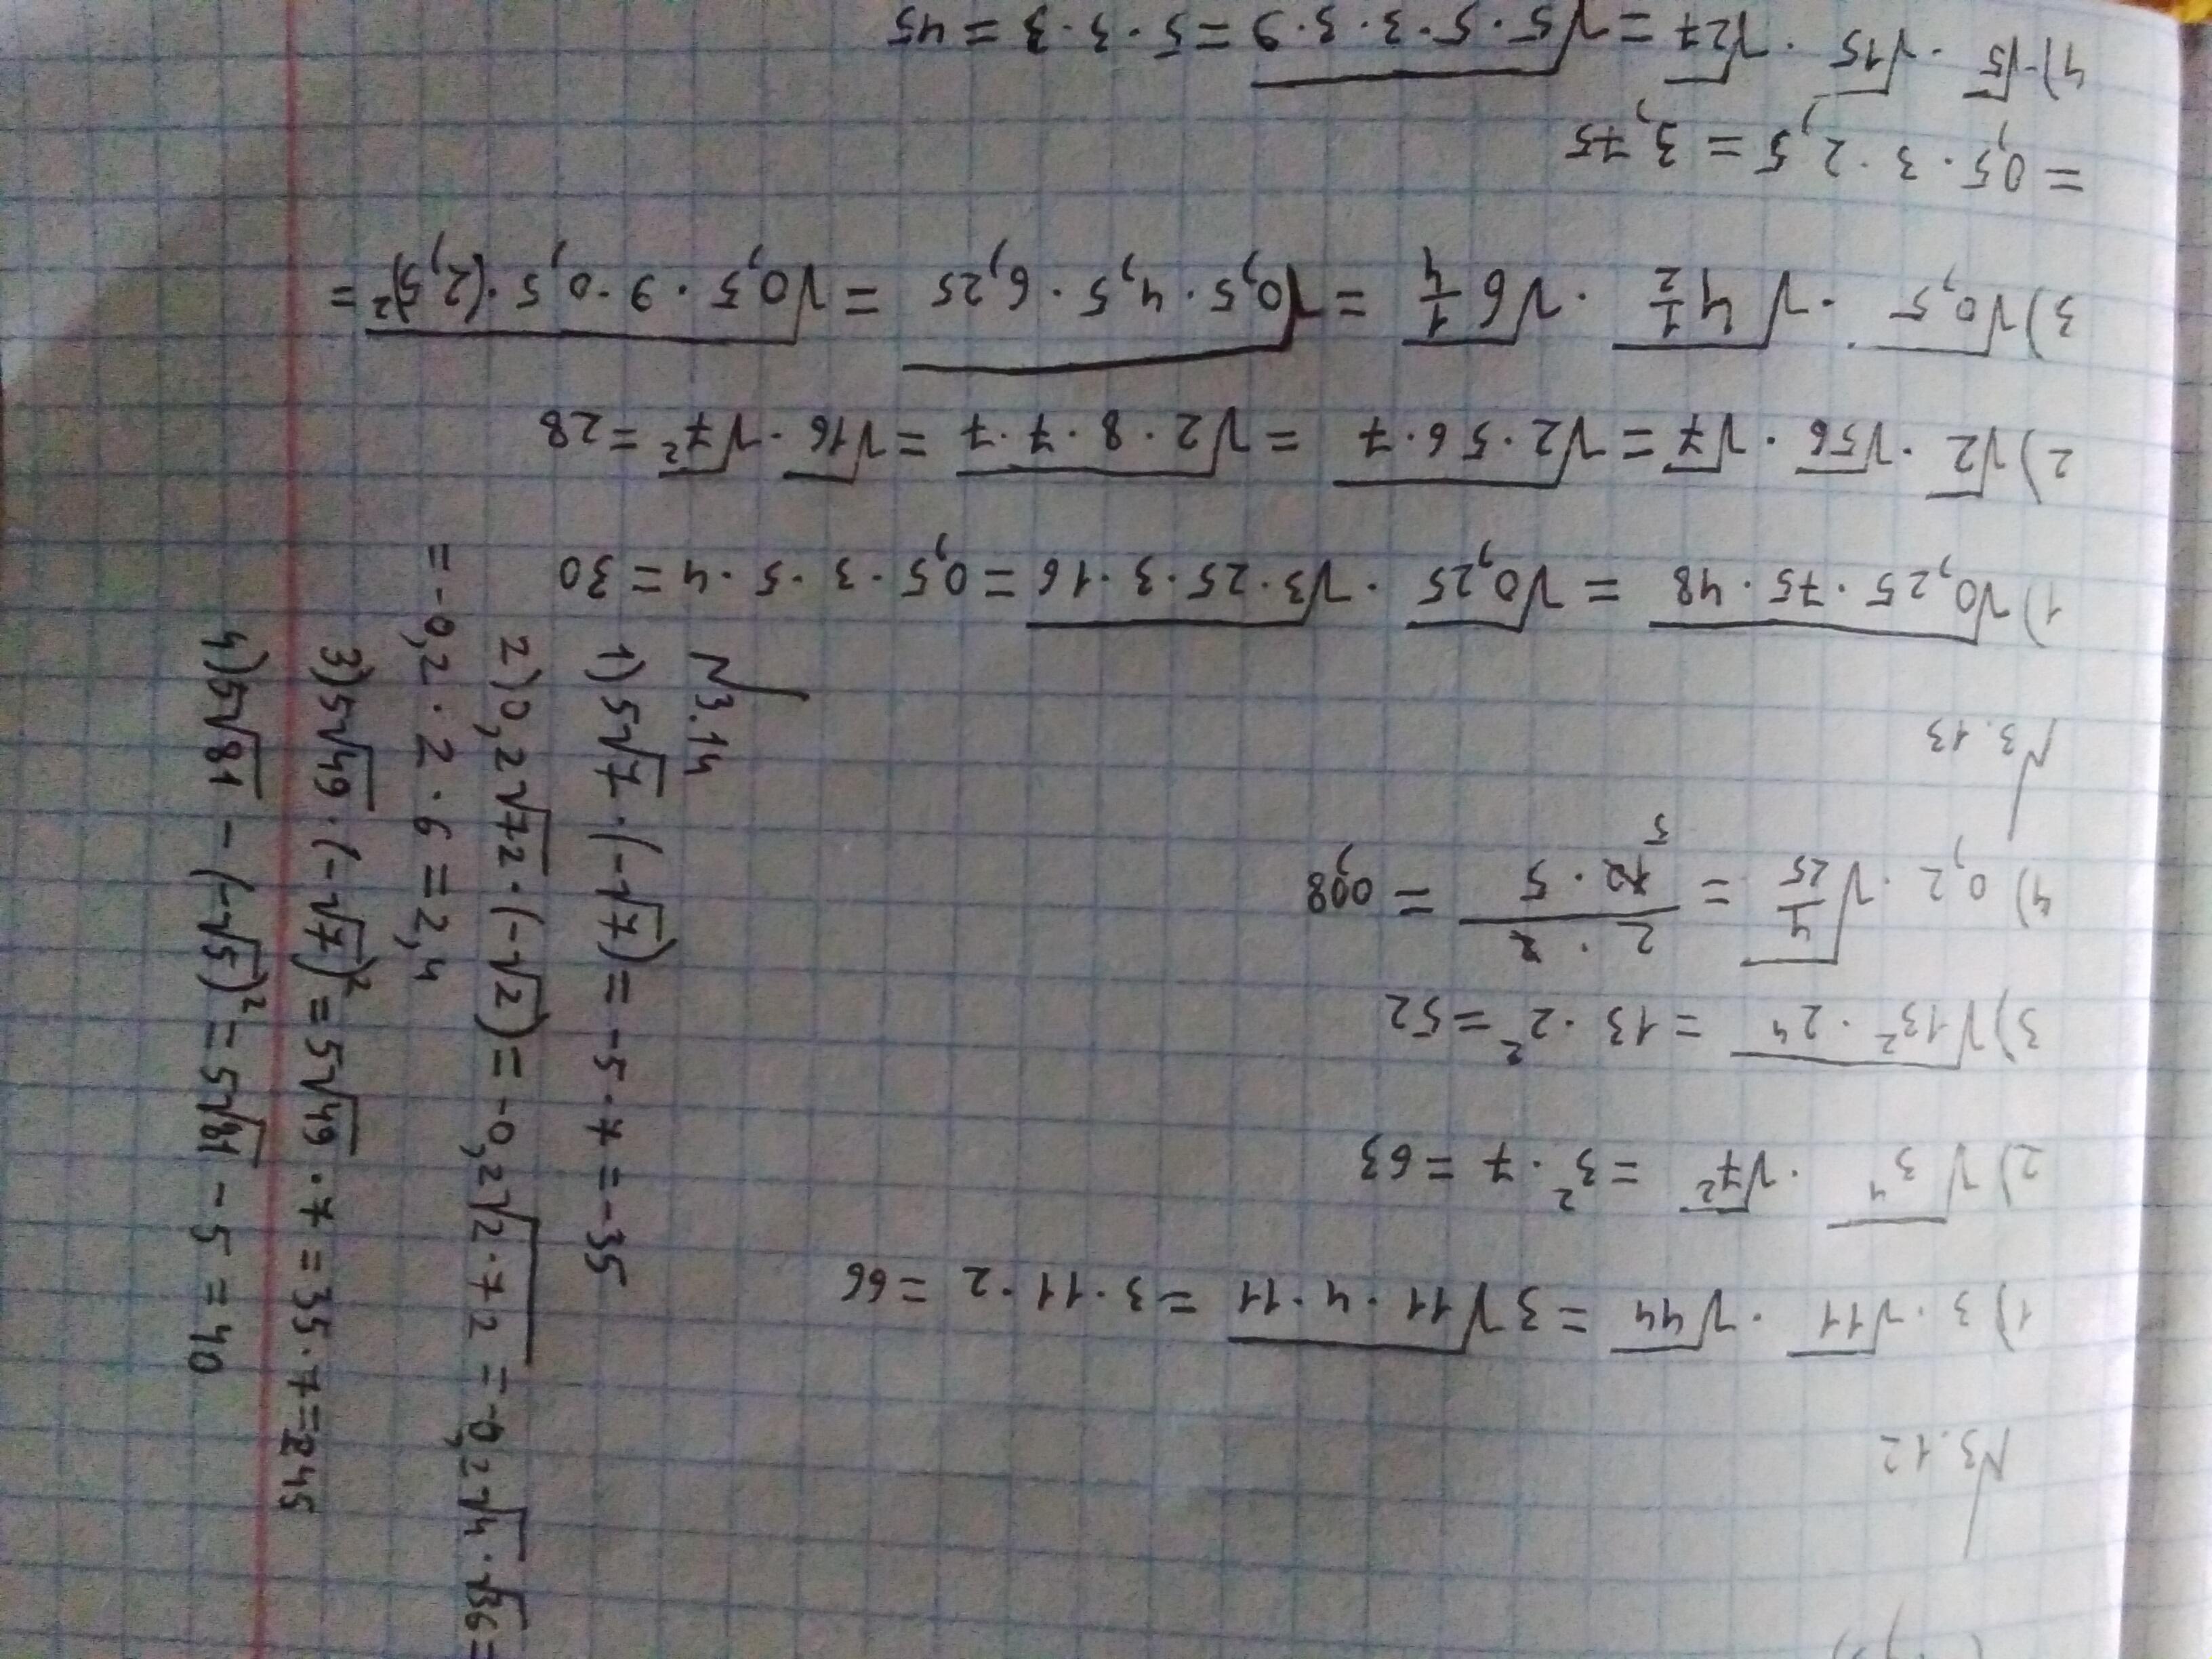 N3.12
1) 3 · √11 · √44 = 3√11 · 4 · 11 = 3 · 11 · 2 = 66
2) √3⁴ · √7² = 3² · 7 = 63
3) √13² · 2⁴ = 13 · 2² = 52
4) 0,2 · √4/25 = 2 · 2 / 10 · 5 = 0,08
5
N3.13
1) √0,25 · 75 · 48 = √0,25 · √3 · 25 · 3 · 16 = 0,5 · 3 · 5 · 4 = 30
2) √2 · √56 · √7 = √2 · 56 · 7 = √2 · 8 · 7 · 7 = √16 · √7² = 28
3) √0,5 · √4 1/2 · √6 1/4 = √0,5 · 4,5 · 6,25 = √0,5 · 9 · 0,5 · (2,5)² =
= 0,5 · 3 · 2,5 = 3,75
4) √5 · √15 · √27 = √5 · 5 · 3 · 3 · 9 = 5 · 3 · 3 = 45
N3.14
1) 5√7 · (-√7) = -5 · 7 = -35
2) 0,2√72 · (-√2) = -0,2√2 · 72 = -0,2√4 · √36 =
= -0,2 · 2 · 6 = 2,4
3) 5√49 · (-√7)² = 5√49 · 7 = 35 · 7 = 245
4) 5√81 - (-√5)² = 5√81 - 5 = 40